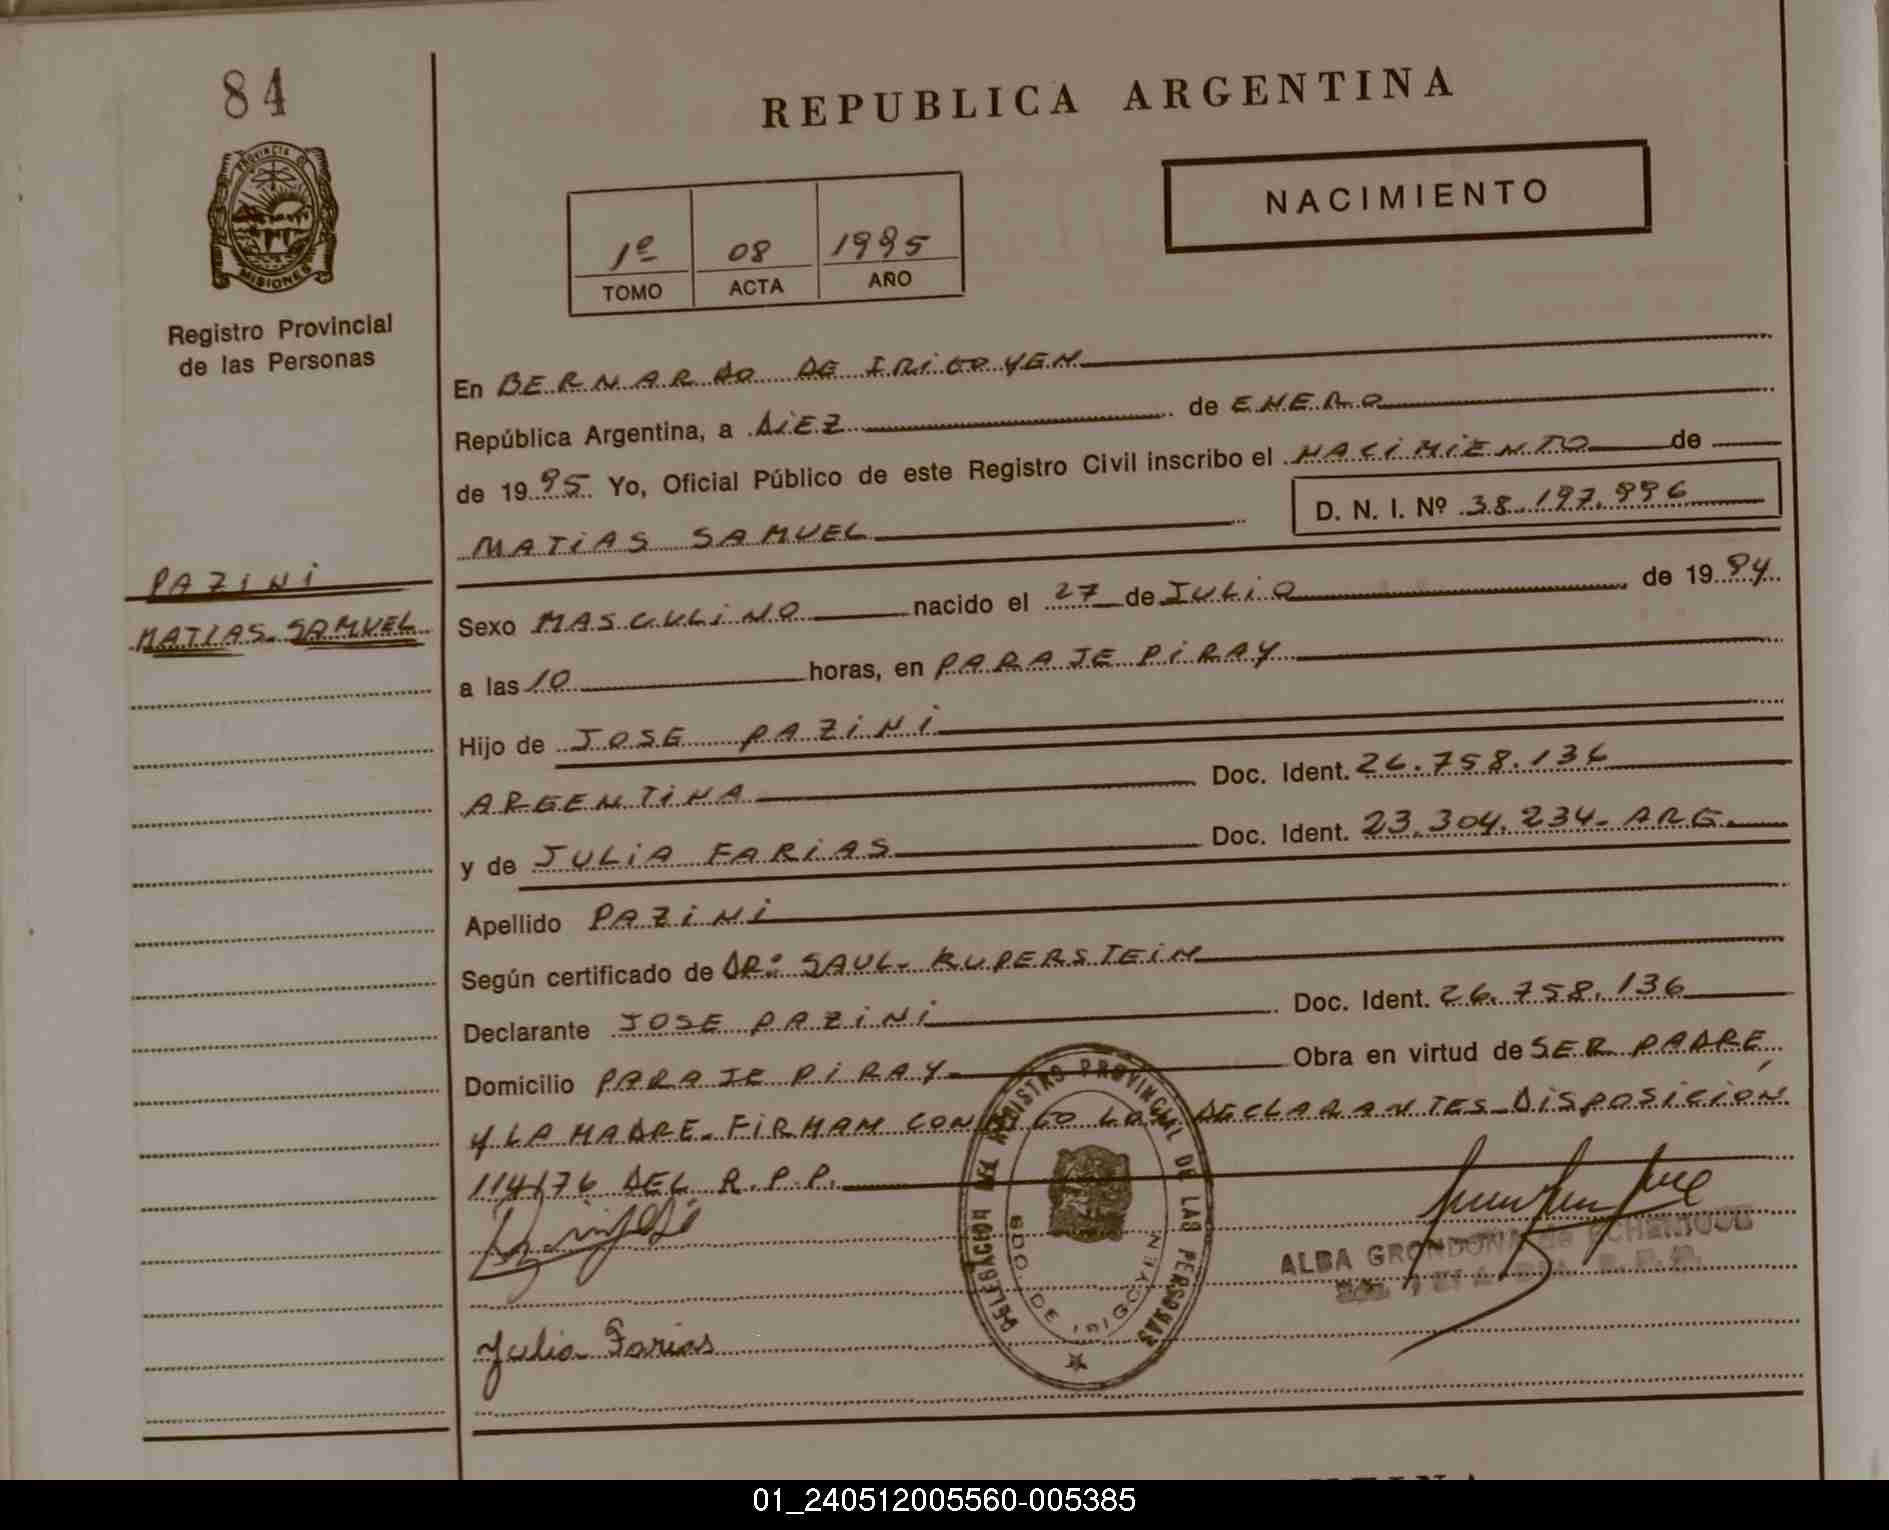 84
REPUBLICA ARGENTINA
PROVINCIA DE
MISIONES
NACIMIENTO
1º 08 1995
TOMO ACTA AÑO
Registro Provincial
de las Personas
En BERNARDO DE IRIGOYEN
República Argentina, a DIEZ de ENERO
de 1995 Yo, Oficial Público de este Registro Civil inscribo el NACIMIENTO de
D. N. I. Nº 38.197.996
MATIAS SAMUEL
PAZINI
MATIAS SAMUEL
Sexo MASCULINO nacido el 27 de JULIO de 1994
a las 10 horas, en PARAJE PIRAY
Hijo de JOSE PAZINI
ARGENTINA Doc. Ident. 26.758.136
y de JULIA FARIAS Doc. Ident. 23.304.234- ARG.
Apellido PAZINI
Según certificado de DR: SAUL- KUPERSTEIN
Declarante JOSE PAZINI Doc. Ident. 26.758.136
Domicilio PARAJE PIRAY Obra en virtud de SER PADRE,
Y LA MADRE- FIRMAN CONMIGO LOS DECLARANTES- DISPOSICION
114/76 DEL R.P.P.
DELEGACION DEL REGISTRO PROVINCIAL DE LAS PERSONAS
BDO DE IRIGOYEN
ALBA GRONDONA de
Julia Farias
01_240512005560-005385